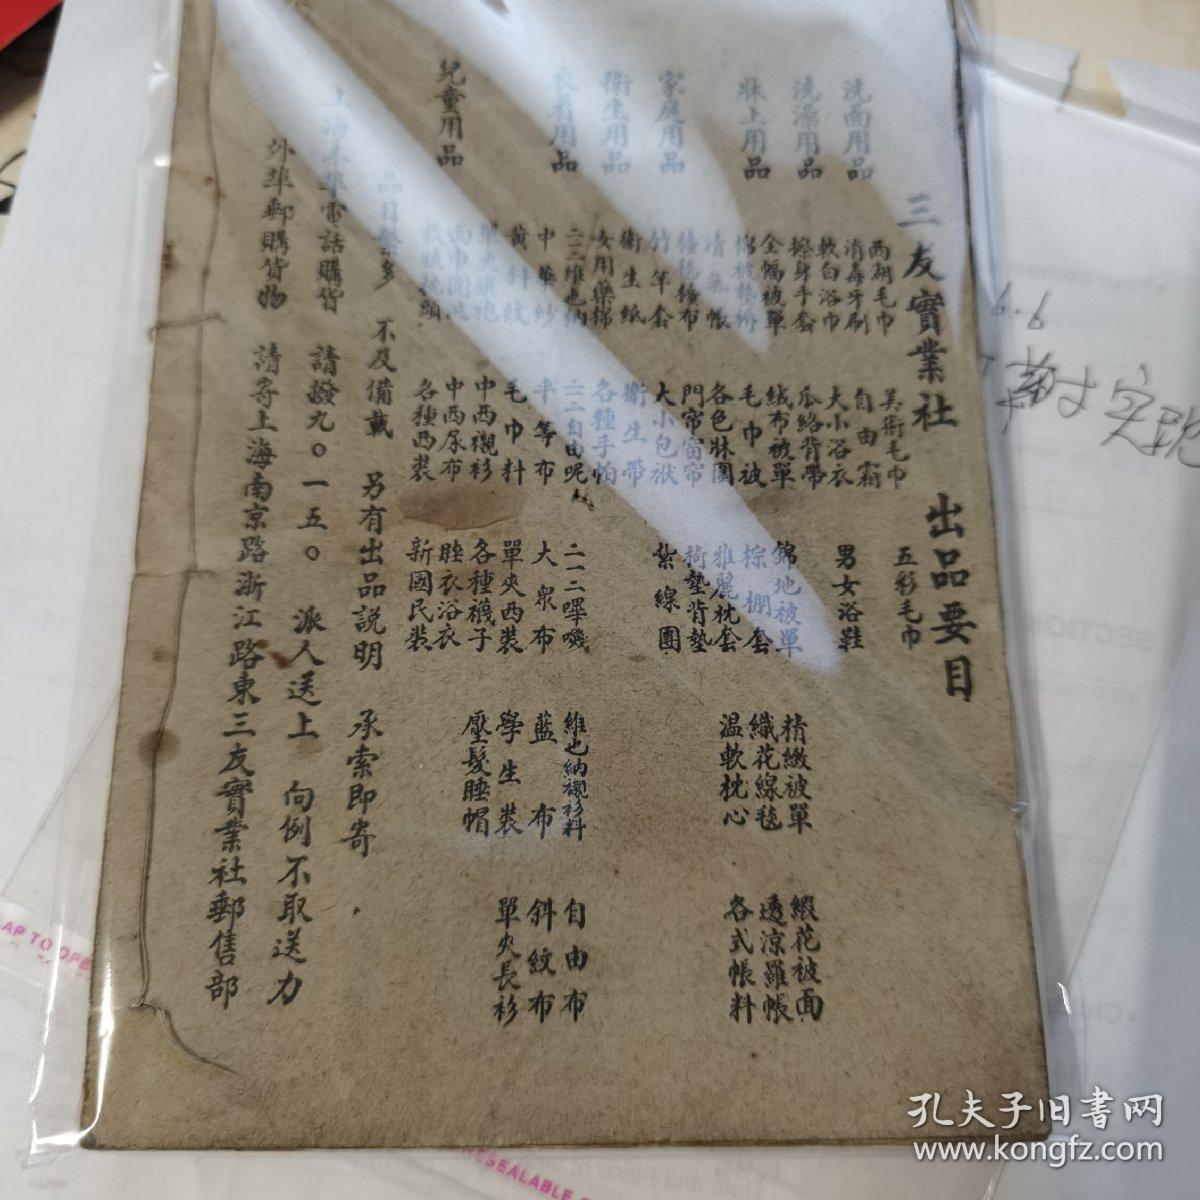 三友實業社 出品要目
洗面用品 西湖毛巾 美術毛巾 五彩毛巾
消毒牙刷 自由霜
洗澡用品 軟白浴巾 大小浴衣 男女浴鞋
擦身手套 瓜絡背帶
牀上用品 全幅被單 絨布被單 錦地被單 精緻被單 緞花被面
棉被墊褥 毛巾被 棕棚套 織花線毯 透凉羅帳
清氣帳 各色牀圍 雅麗枕套 温軟枕心 各式帳料
家庭用品 檯毯檯布 門帘窗帘 椅墊背墊
竹竿套 大小包袱 紮線團
衛生用品 衛生紙 衛生帶
女用藥棉 各種手帕
衣着用品 二二維也納 二二自由呢 二一二嗶嘰 維也納襯衫料 自由布
中華紗 平等布 大衆布 藍布 斜紋布
黄斜紋 毛巾料 單夾西裝 學生裝 單夾長衫
單夾旗袍 中西襯衫 各種襪子 壓髮睡帽
兒童用品 面巾圍涎 中西尿布 睡衣浴衣
各種西裝 新國民裝
品目繁多 不及備載 另有出品説明 承索即寄
上海本埠電話購貨 請撥九〇一五〇 派人送上 向例不取送力
外埠郵購貨物 請寄上海南京路浙江路東三友實業社郵售部
6.6
AP TO OPE
RESEALABLE S
孔夫子旧書网
www.kongfz.com